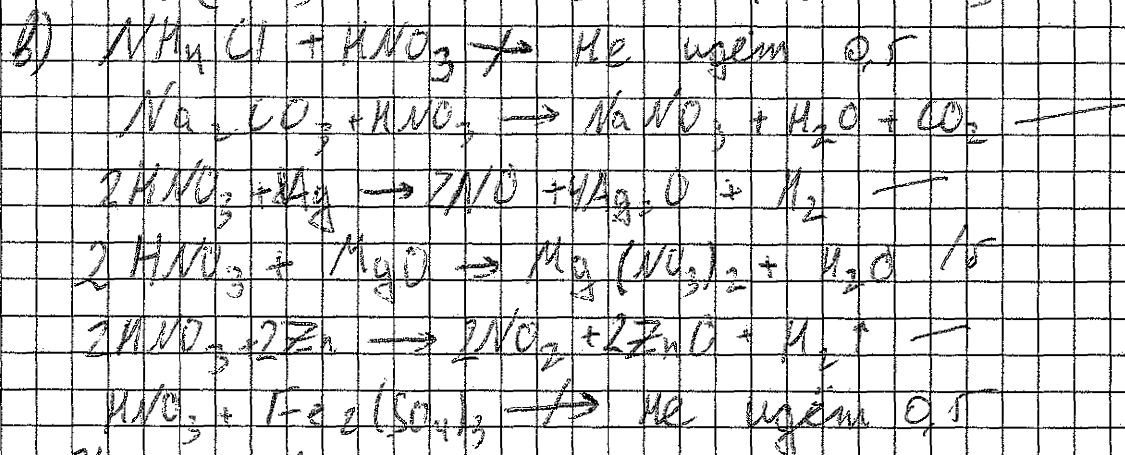 в) NH₄Cl + HNO₃ ↛ не идет 0,5
Na₂CO₃ + HNO₃ → NaNO₃ + H₂O + CO₂ —
2HNO₃ + Ag → 2NO + 4Ag₂O + H₂ —
2HNO₃ + MgO → Mg(NO₃)₂ + H₂O 1б
2HNO₃ + 2Zn → 2NO₂ + 2ZnO + H₂↑ —
HNO₃ + Fe₂(SO₄)₃ ↛ не идёт 0,5